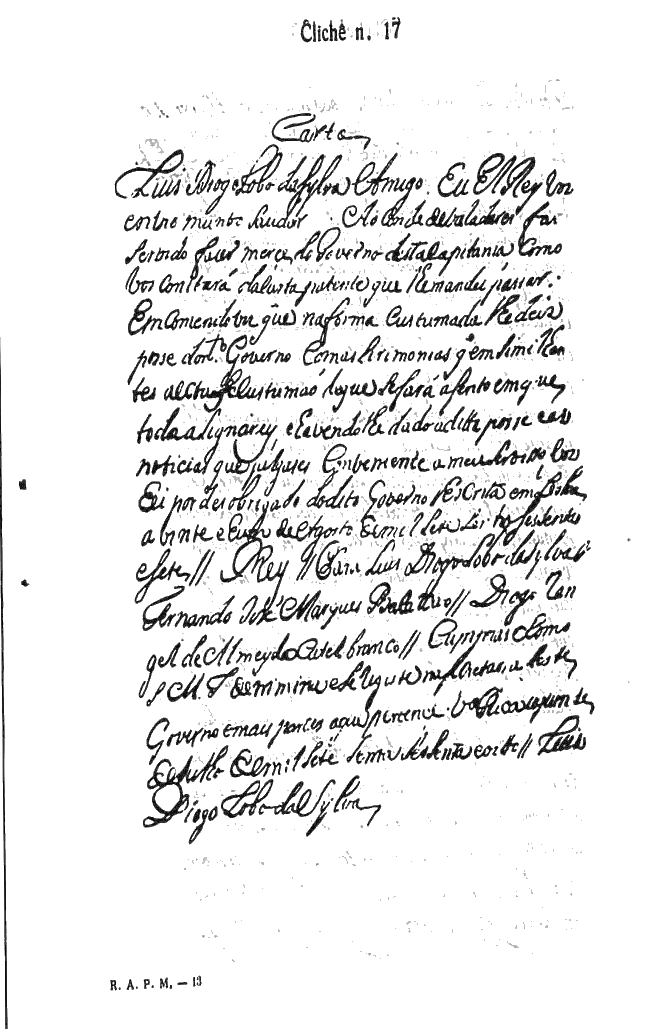 Cliché n. 17
Carta
Luis Diogo Lobo da Sylva Amigo. Eu El Rey vos
envio muito saudar. Ao Conde de Valadares fui
servido fazer merce do Governo desta Capitania Como
vos Constará da Carta patente que lhe mandei passar.
Emcomendovos que na forma Custumada lhe deis
posse do d.to Governo Com as Sirimonias q em Simi lhan
tes actos Se Custumaõ do que Se fará asento em que
todos asignareis, e havendo lhe dado a ditta posse e as
noticias que julgares Conveniente a meu Servisso vos
Eu por desobrigado do dito Governo Escrita em Lisboa
a vinte e hum de Agosto de mil Sete Sentos Sesenta
e Sete // Rey // Para Luis Diogo Lobo da Sylva //
Fernando José Marques Bacalhao // Diogo Ran
gel de Almeyda Castel branco // Cumprase Como
S. M. F. detremina e Se Registe nas Secretaria deste
Governo e mais partes a que pertencer. Villa Rica
de Julho de mil Sete Sentos Sesenta e oito // Luis
Diogo Lobo da Sylva
R. A. P. M. — 13